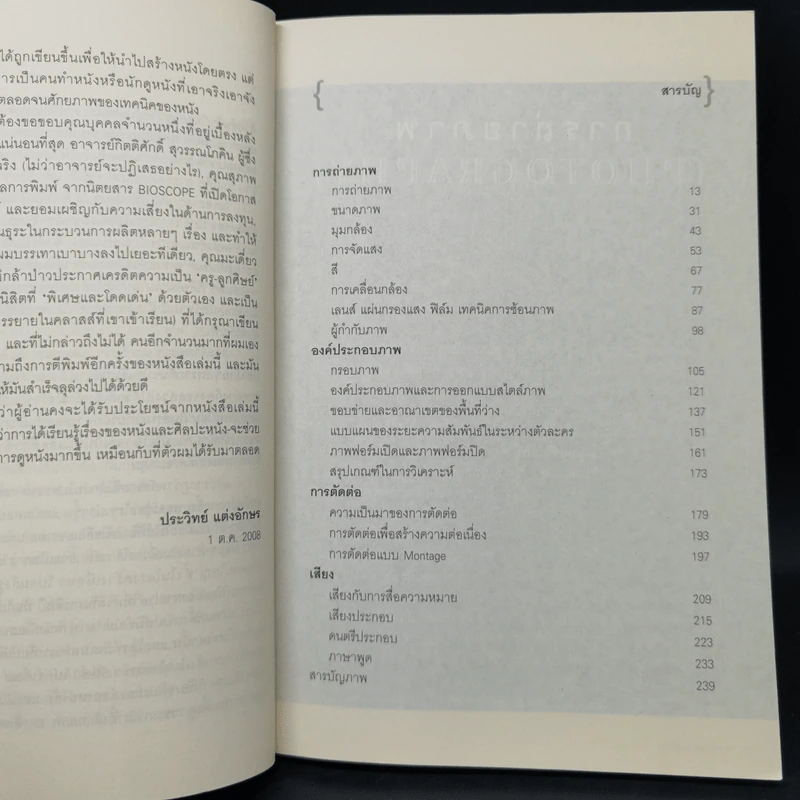 ได้ถูกเขียนขึ้นเพื่อให้นำไปสร้างหนังโดยตรง แต่
ารเป็นคนทำหนังหรือนักดูหนังที่เอาจริงเอาจัง
ตลอดจนศักยภาพของเทคนิคของหนัง
ต้องขอขอบคุณบุคคลจำนวนหนึ่งที่อยู่เบื้องหลัง
แน่นอนที่สุด อาจารย์กิตติศักดิ์ สุวรรณโภคิน ผู้ซึ่ง
จริง (ไม่ว่าอาจารย์จะปฏิเสธอย่างไร), คุณสุภาพ
ลการพิมพ์ จากนิตยสาร BIOSCOPE ที่เปิดโอกาส
และยอมเผชิญกับความเสี่ยงในด้านการลงทุน,
นธุระในกระบวนการผลิตหลายๆ เรื่อง และทำให้
มบรรเทาเบาบางลงไปเยอะทีเดียว, คุณมะเดี่ยว
กล้าป่าวประกาศเครดิตความเป็น 'ครู-ลูกศิษย์'
นิสิตที่ 'พิเศษและโดดเด่น' ด้วยตัวเอง และเป็น
รรยายในคลาสส์ที่เขาเข้าเรียน) ที่ได้กรุณาเขียน
และที่ไม่กล่าวถึงไม่ได้ คนอีกจำนวนมากที่ผมเอง
ามถึงการตีพิมพ์อีกครั้งของหนังสือเล่มนี้ และมัน
ให้มันสำเร็จลุล่วงไปได้ด้วยดี
ว่าผู้อ่านคงจะได้รับประโยชน์จากหนังสือเล่มนี้
ว่าการได้เรียนรู้เรื่องของหนังและศิลปะหนัง-จะช่วย
การดูหนังมากขึ้น เหมือนกับที่ตัวผมได้รับมาตลอด
ประวิทย์ แต่งอักษร
1 ต.ค. 2008
{ สารบัญ }
การถ่ายภาพ
การถ่ายภาพ 13
ขนาดภาพ 31
มุมกล้อง 43
การจัดแสง 53
สี 67
การเคลื่อนกล้อง 77
เลนส์ แผ่นกรองแสง ฟิล์ม เทคนิคการซ้อนภาพ 87
ผู้กำกับภาพ 98
องค์ประกอบภาพ
กรอบภาพ 105
องค์ประกอบภาพและการออกแบบสไตล์ภาพ 121
ขอบข่ายและอาณาเขตของพื้นที่ว่าง 137
แบบแผนของระยะความสัมพันธ์ในระหว่างตัวละคร 151
ภาพฟอร์มเปิดและภาพฟอร์มปิด 161
สรุปเกณฑ์ในการวิเคราะห์ 173
การตัดต่อ
ความเป็นมาของการตัดต่อ 179
การตัดต่อเพื่อสร้างความต่อเนื่อง 193
การตัดต่อแบบ Montage 197
เสียง
เสียงกับการสื่อความหมาย 209
เสียงประกอบ 215
ดนตรีประกอบ 223
ภาษาพูด 233
สารบัญภาพ 239